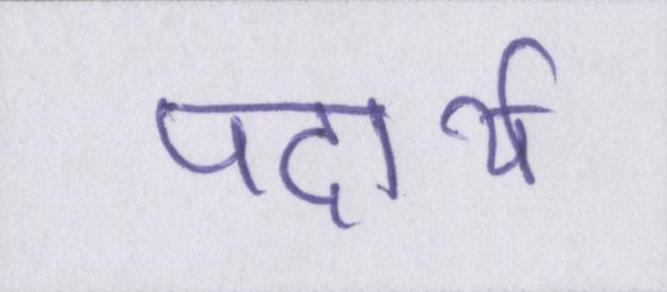 पदार्थ